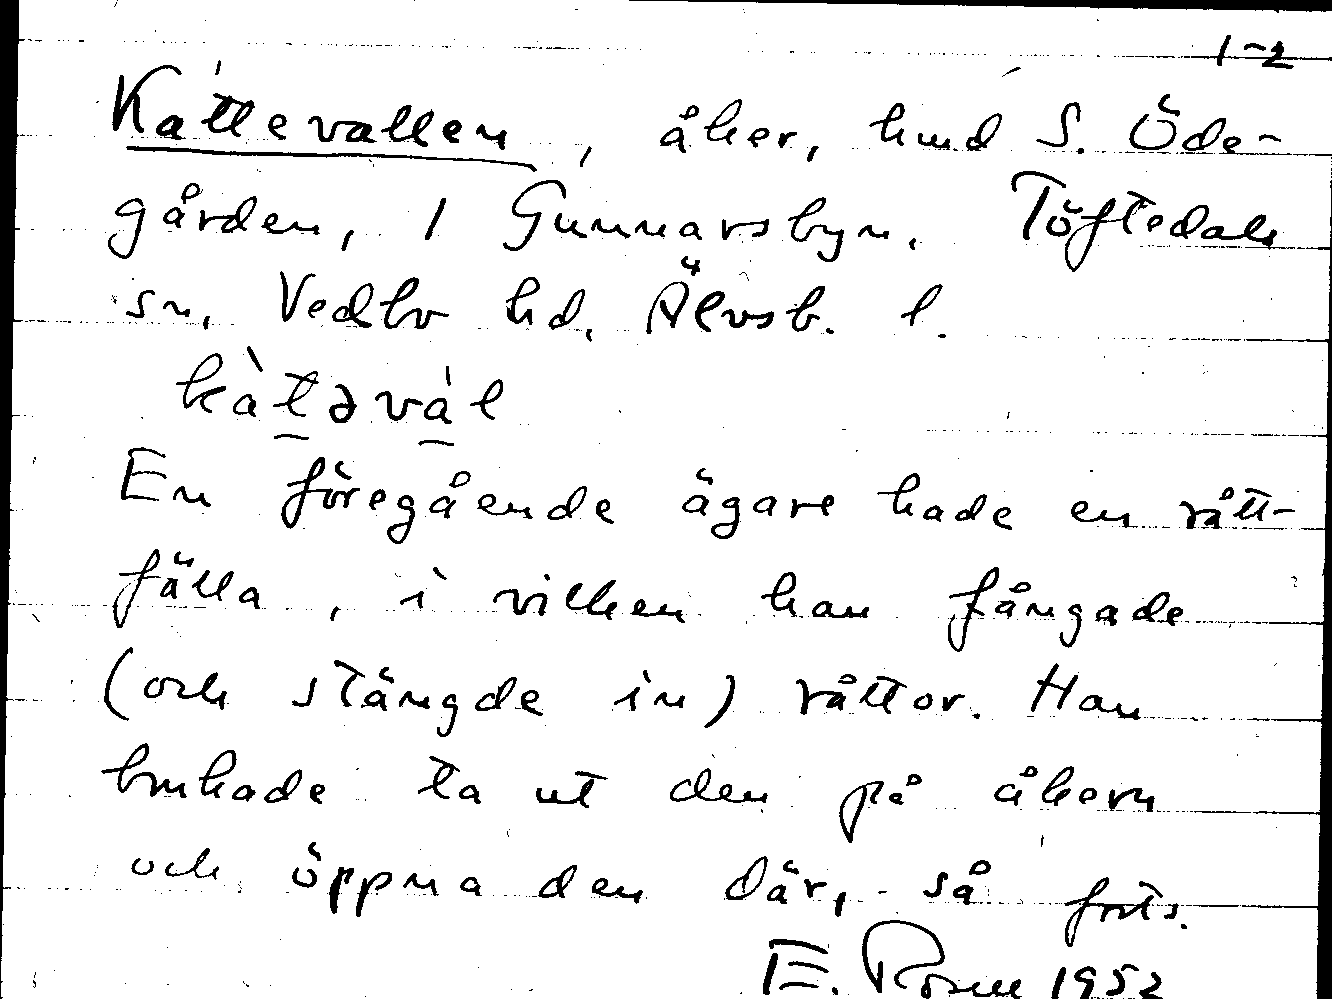 1-2
Kattevallen, åker, hmd S. Öde-
gården, 1 Gunnarsbyn, Töftedals
sn, Vedbo hd, Älvsb. l.
kàtəvál
En föregående ägare hade en rått-
fälla, i vilken han fångade
(och stängde in) råttor. Han
brukade ta ut den på åkern
och öppna den där, så forts.
E. Rosell 1952